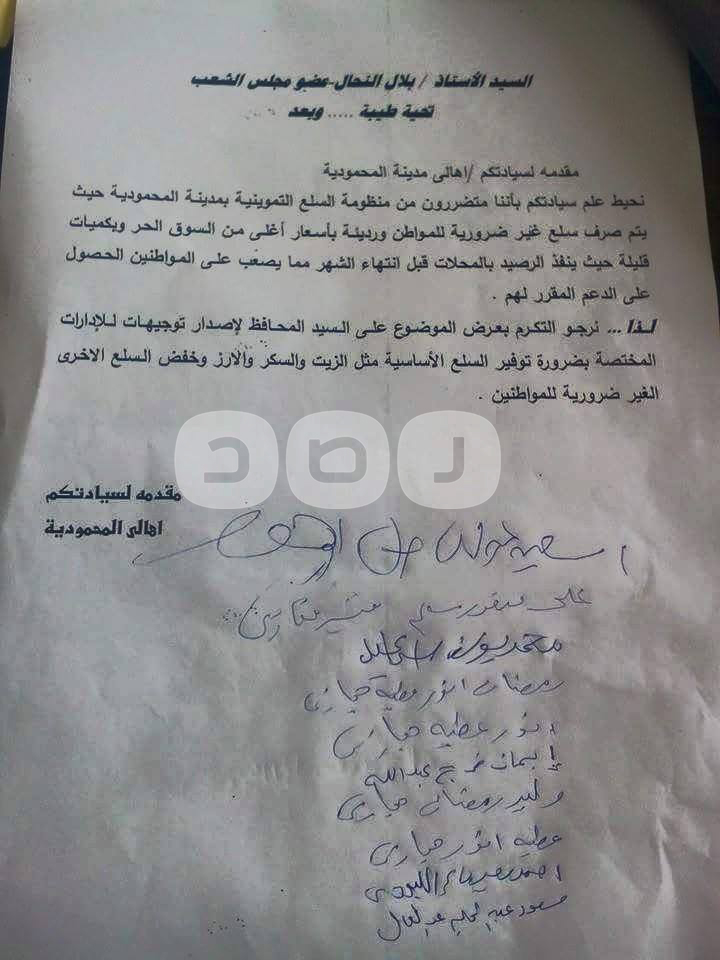 السيد الأستاذ / بلال النحال-عضو مجلس الشعب
تحية طيبة ..... وبعد
مقدمه لسيادتكم /اهالى مدينة المحمودية
نحيط علم سيادتكم بأننا متضررون من منظومة السلع التموينية بمدينة المحمودية حيث
يتم صرف سلع غير ضرورية للمواطن ورديئة بأسعار أغلى من السوق الحر وبكميات
قليلة حيث ينفذ الرصيد بالمحلات قبل انتهاء الشهر مما يصعب على المواطنين الحصول
على الدعم المقرر لهم .
لذا ... نرجو التكرم بعرض الموضوع على السيد المحافظ لإصدار توجيهات للإدارات
المختصة بضرورة توفير السلع الأساسية مثل الزيت والسكر والأرز وخفض السلع الاخرى
الغير ضرورية للمواطنين .
رصد
مقدمه لسيادتكم
اهالى المحمودية
على
محمد يوسف
رمضان انور عطيه حجازى
انور عطيه حجازى
إيمان فرج عبدالله
وليد رمضان حجازى
عطيه انور حجازى
احمد
مسعود عبد الحليم عبد العال